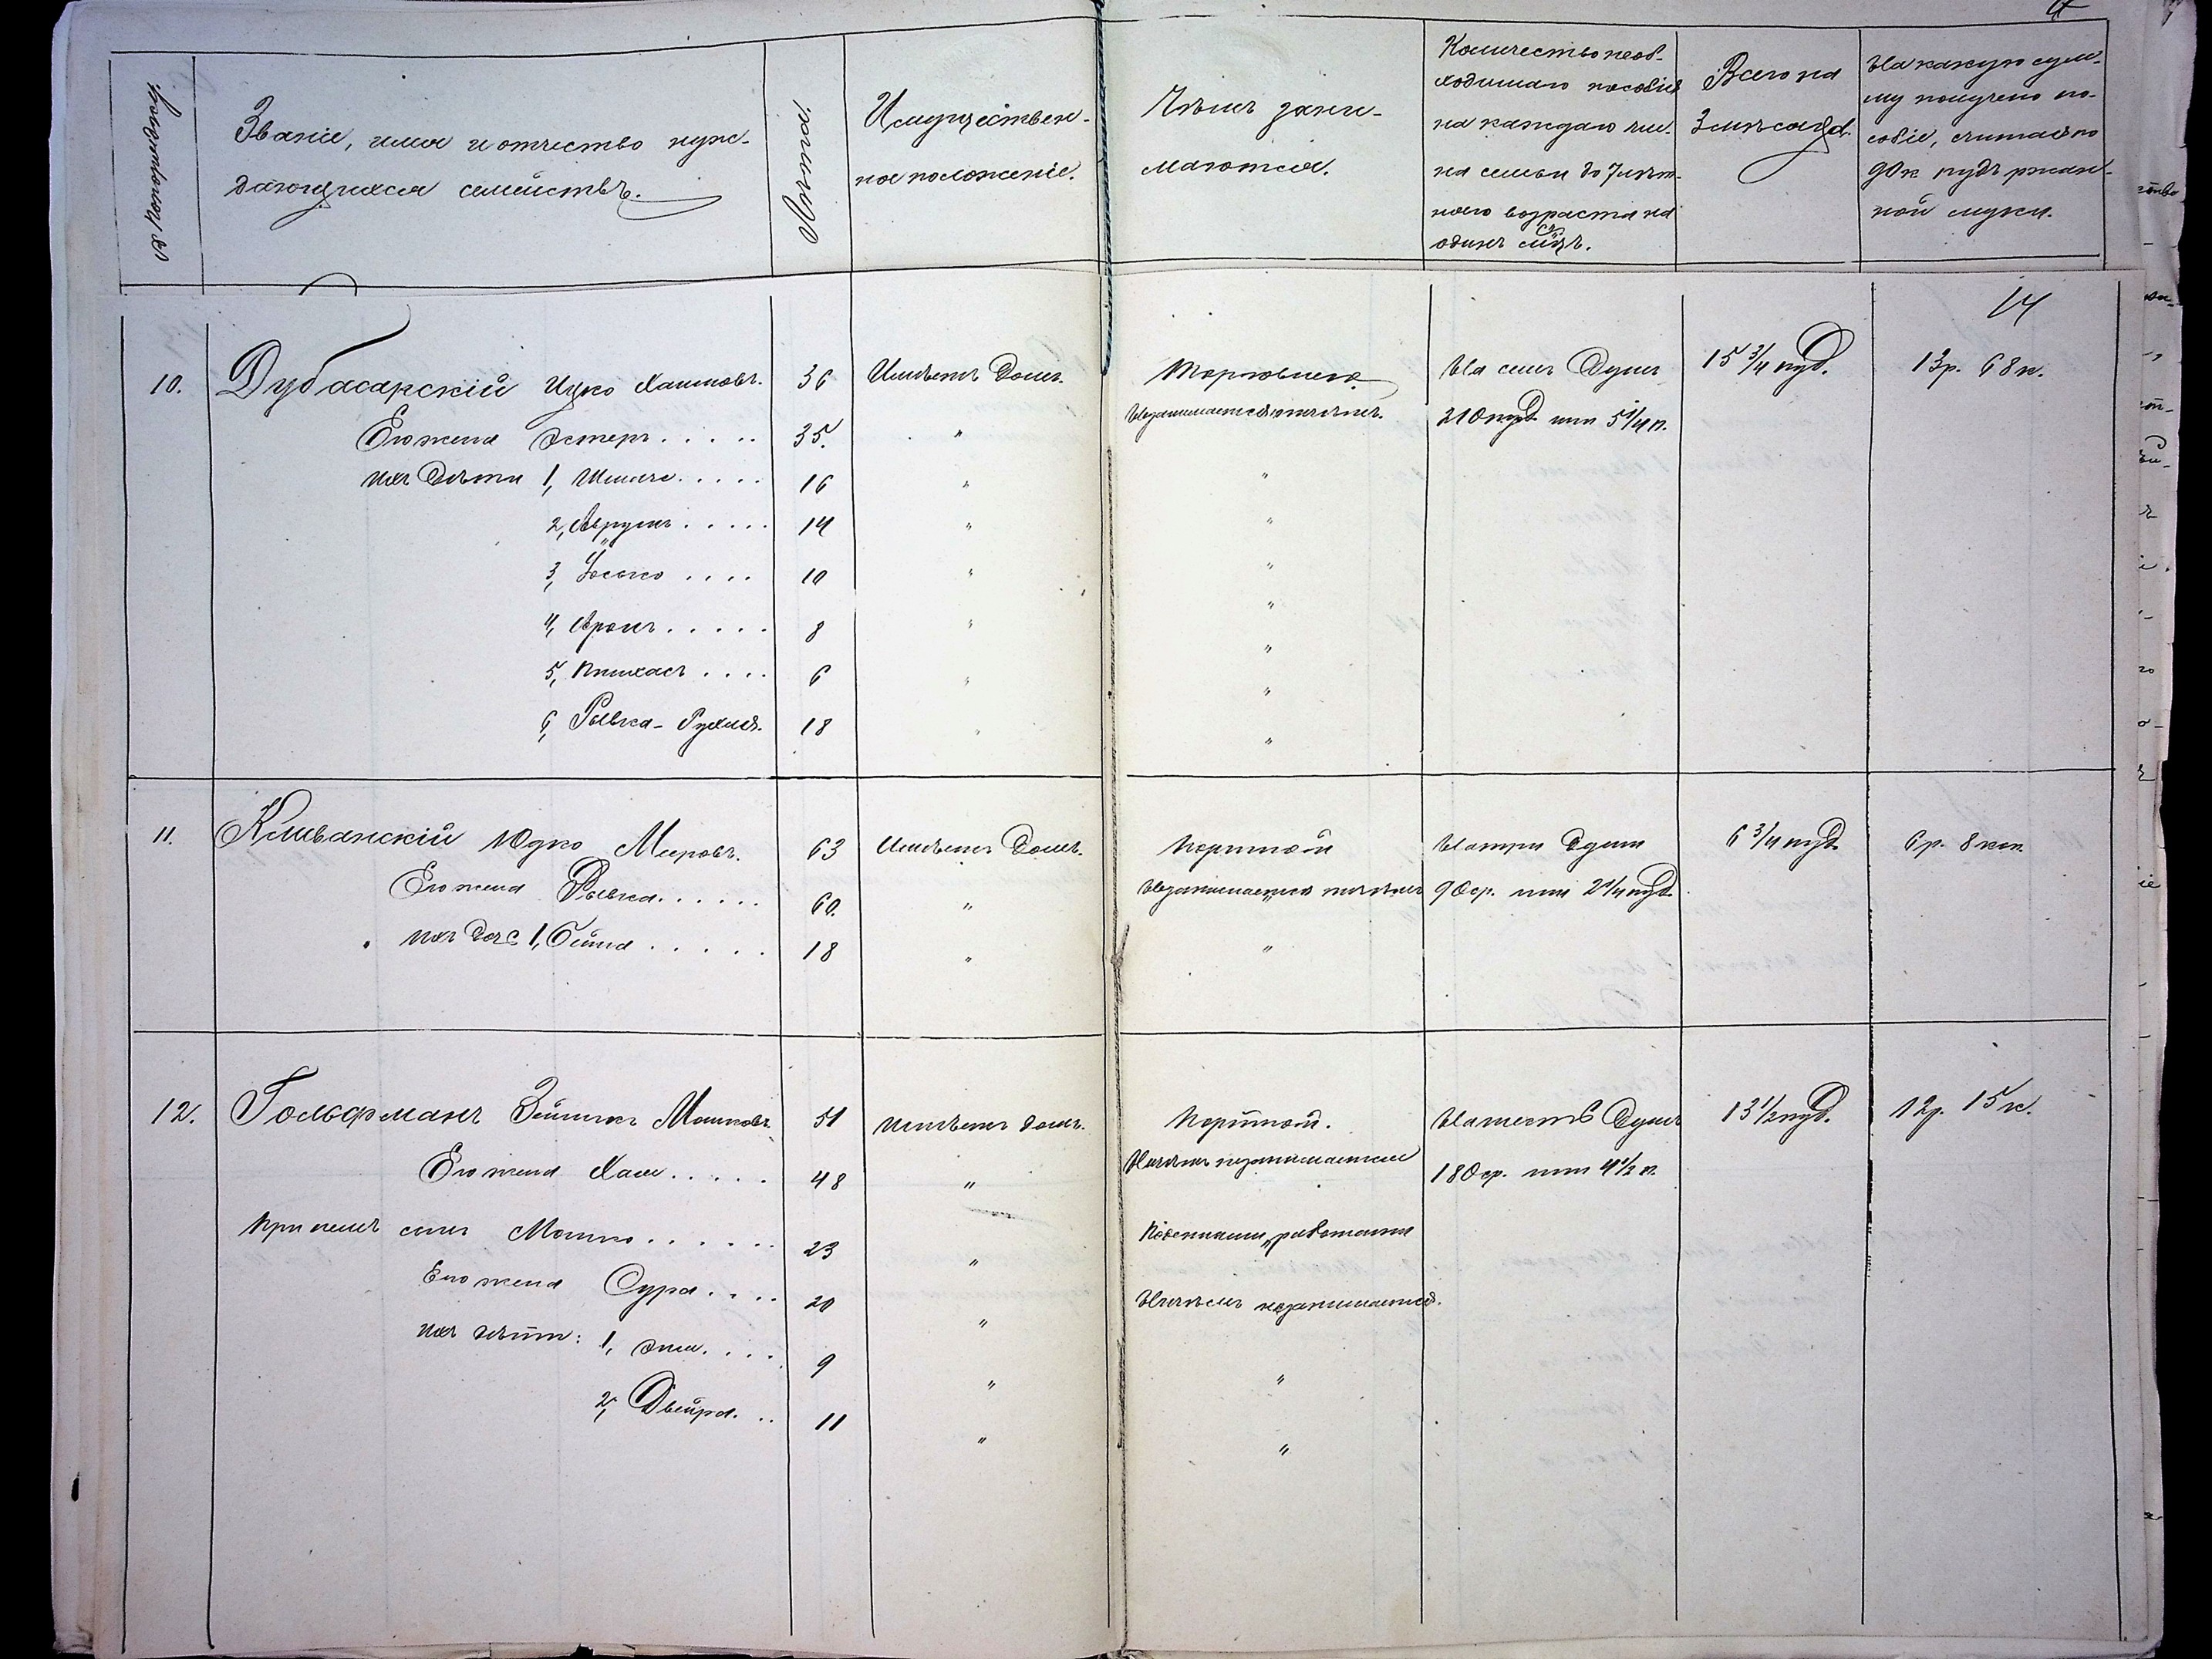 Званіе, имя и отчество нуж-
дающихся семействъ.
Имуществен-
ное положеніе.
Чѣмъ зани-
маются.
Количество необ-
ходимаго пособія
на каждаго чле-
на семьи до 7 лѣт-
няго возраста на
одинъ мѣсцъ.
Всего на
3 мѣсяца.
На какую сум-
му получено по-
собіе, считая по
90 к пудъ ржан-
ной муки.
14
10. Дубасарскій Ицко Хаимовъ. 36 Имѣетъ Домъ. Торговлею. На семь Душъ 15 3/4 пуд. 13 р. 68 к.
Его жена Эстеръ..... 35. " Незанимается ничѣмъ. 210 или 5 1/4 п.
ихъ Дѣти 1, ..... 16 " "
2, Аврумъ..... 14 " "
3, Іосько.... 10 " "
4, Аронъ..... 8 " "
5, Пинхасъ.... 6 " "
6, Рывка-Рухля. 18 " "
11. Юдко Меировъ. 63 Имѣетъ Домъ. Портной На три Души 6 3/4 пуд. 6 р. 8 коп.
Его жена Рывка...... 60. " Незанимается ничѣмъ 90 ф. или 2 1/4 пуд.
ихъ дочь 1, Бейла..... 18 " "
12. Гольфманъ Зейликъ Мошковъ. 51 Имѣетъ домъ. Портной. На шесть Душъ 13 1/2 пуд. 12 р. 15 к.
Его жена Хая..... 48 " Ничѣмъ незанимается 180 ф. или 4 1/2 п.
При немъ сынъ Мошко...... 23 " Поденными работами
Его жена Сура.... 20 " Ничѣмъ незанимается.
ихъ дѣти: 1, Эня.... 9 " "
2, Двейра... 11 " "